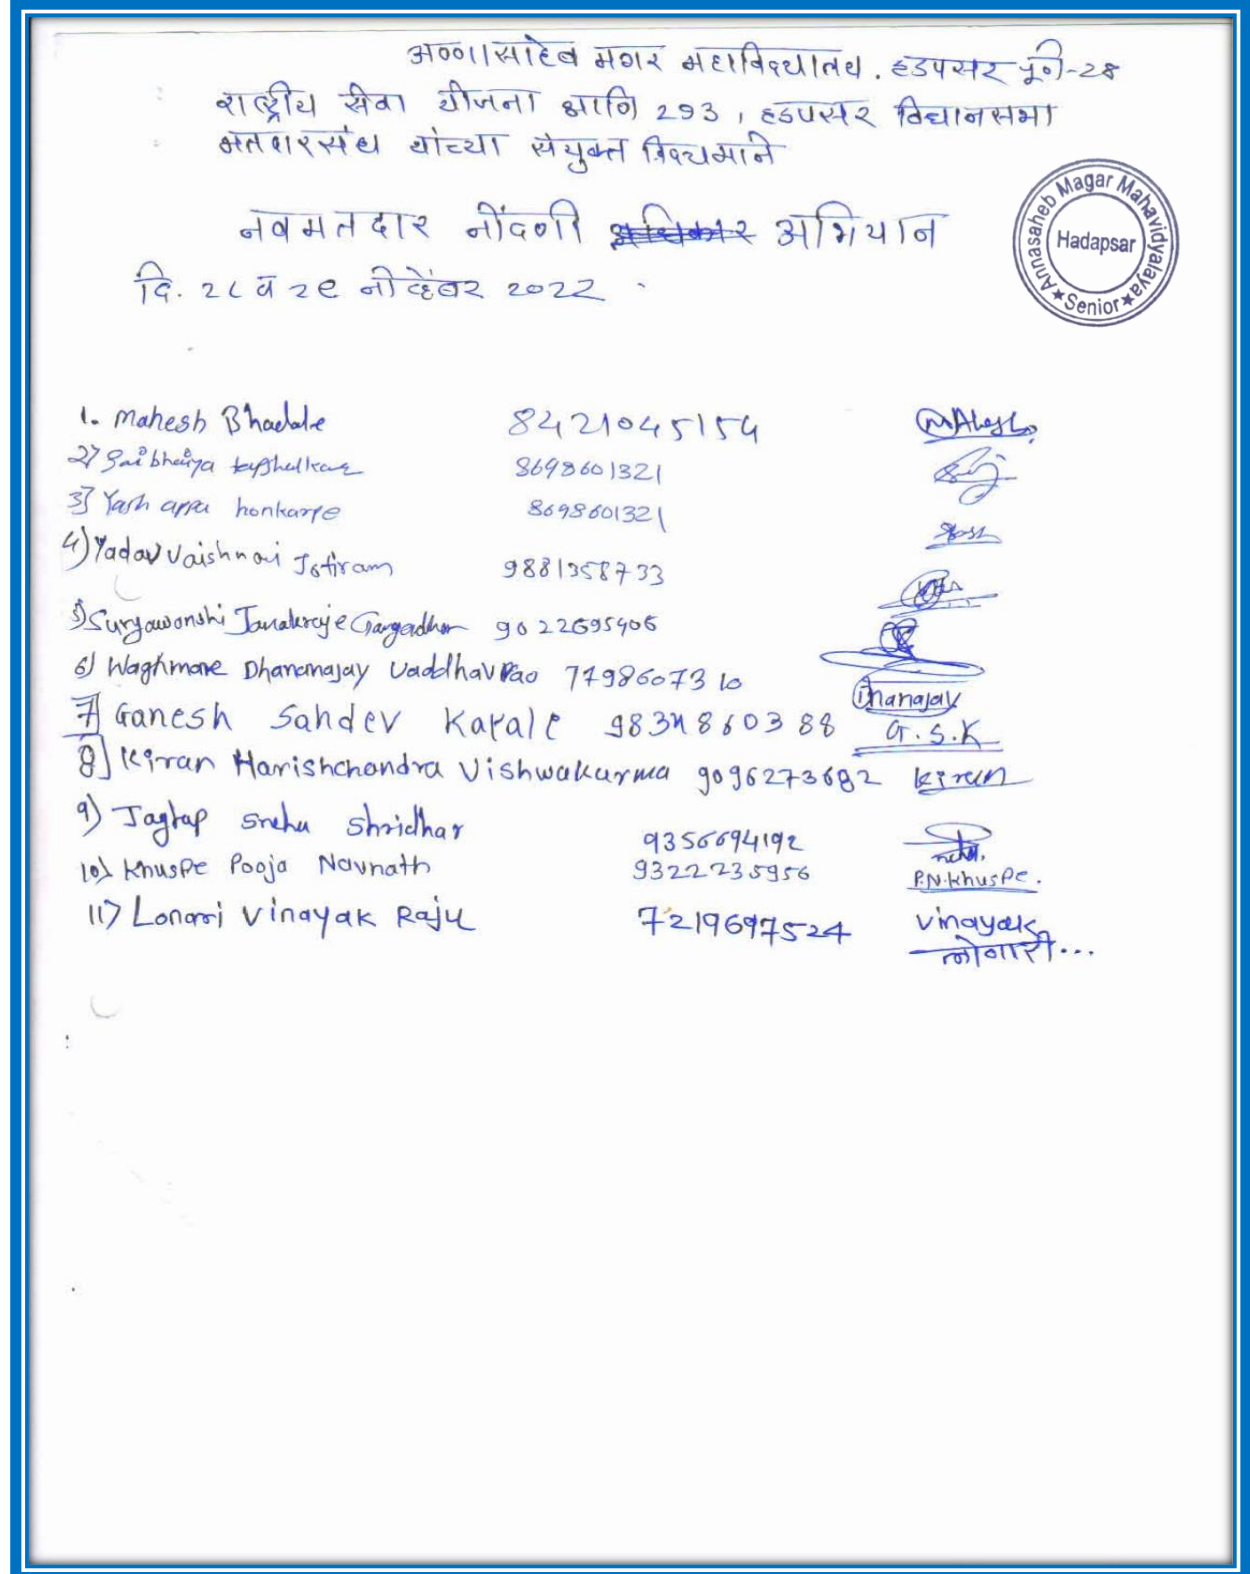 अण्णासाहेब मगर महाविद्यालय. हडपसर पुणे-28
राष्ट्रीय सेवा योजना आणि 293, हडपसर विधानसभा
मतदारसंघ यांच्या संयुक्त विद्यमाने
नवमतदार नोंदणी अभियान
दि. २८ व २९ नोव्हेंबर 2022
Annasaheb Magar Mahavidyalaya
Hadapsar
★ Senior ★
1. Mahesh Bhadale 8421045154 Mahesh
2) Saibhaiya 8698601321
3) Yash appa honkarpe 8698601321 Yash
4) Yadav Vaishnavi Jotiram 9881358733
5) Suryawanshi Janakraje Gangadhar 9022695406
6) Waghmare Dhananajay Uaddhavrao 7798607310 Dhanajay
7] Ganesh Sahdev Karale 9834860388 G.S.K
8] Kiran Harishchandra Vishwakarma 9096273682 Kiran
9) Jagtap Sneha Shridhar 9356694192
10) Khuspe Pooja Navnath 9322235956 P.N.Khuspe.
11) Lonari Vinayak Raju 7219697524 Vinayak
लोणारी...